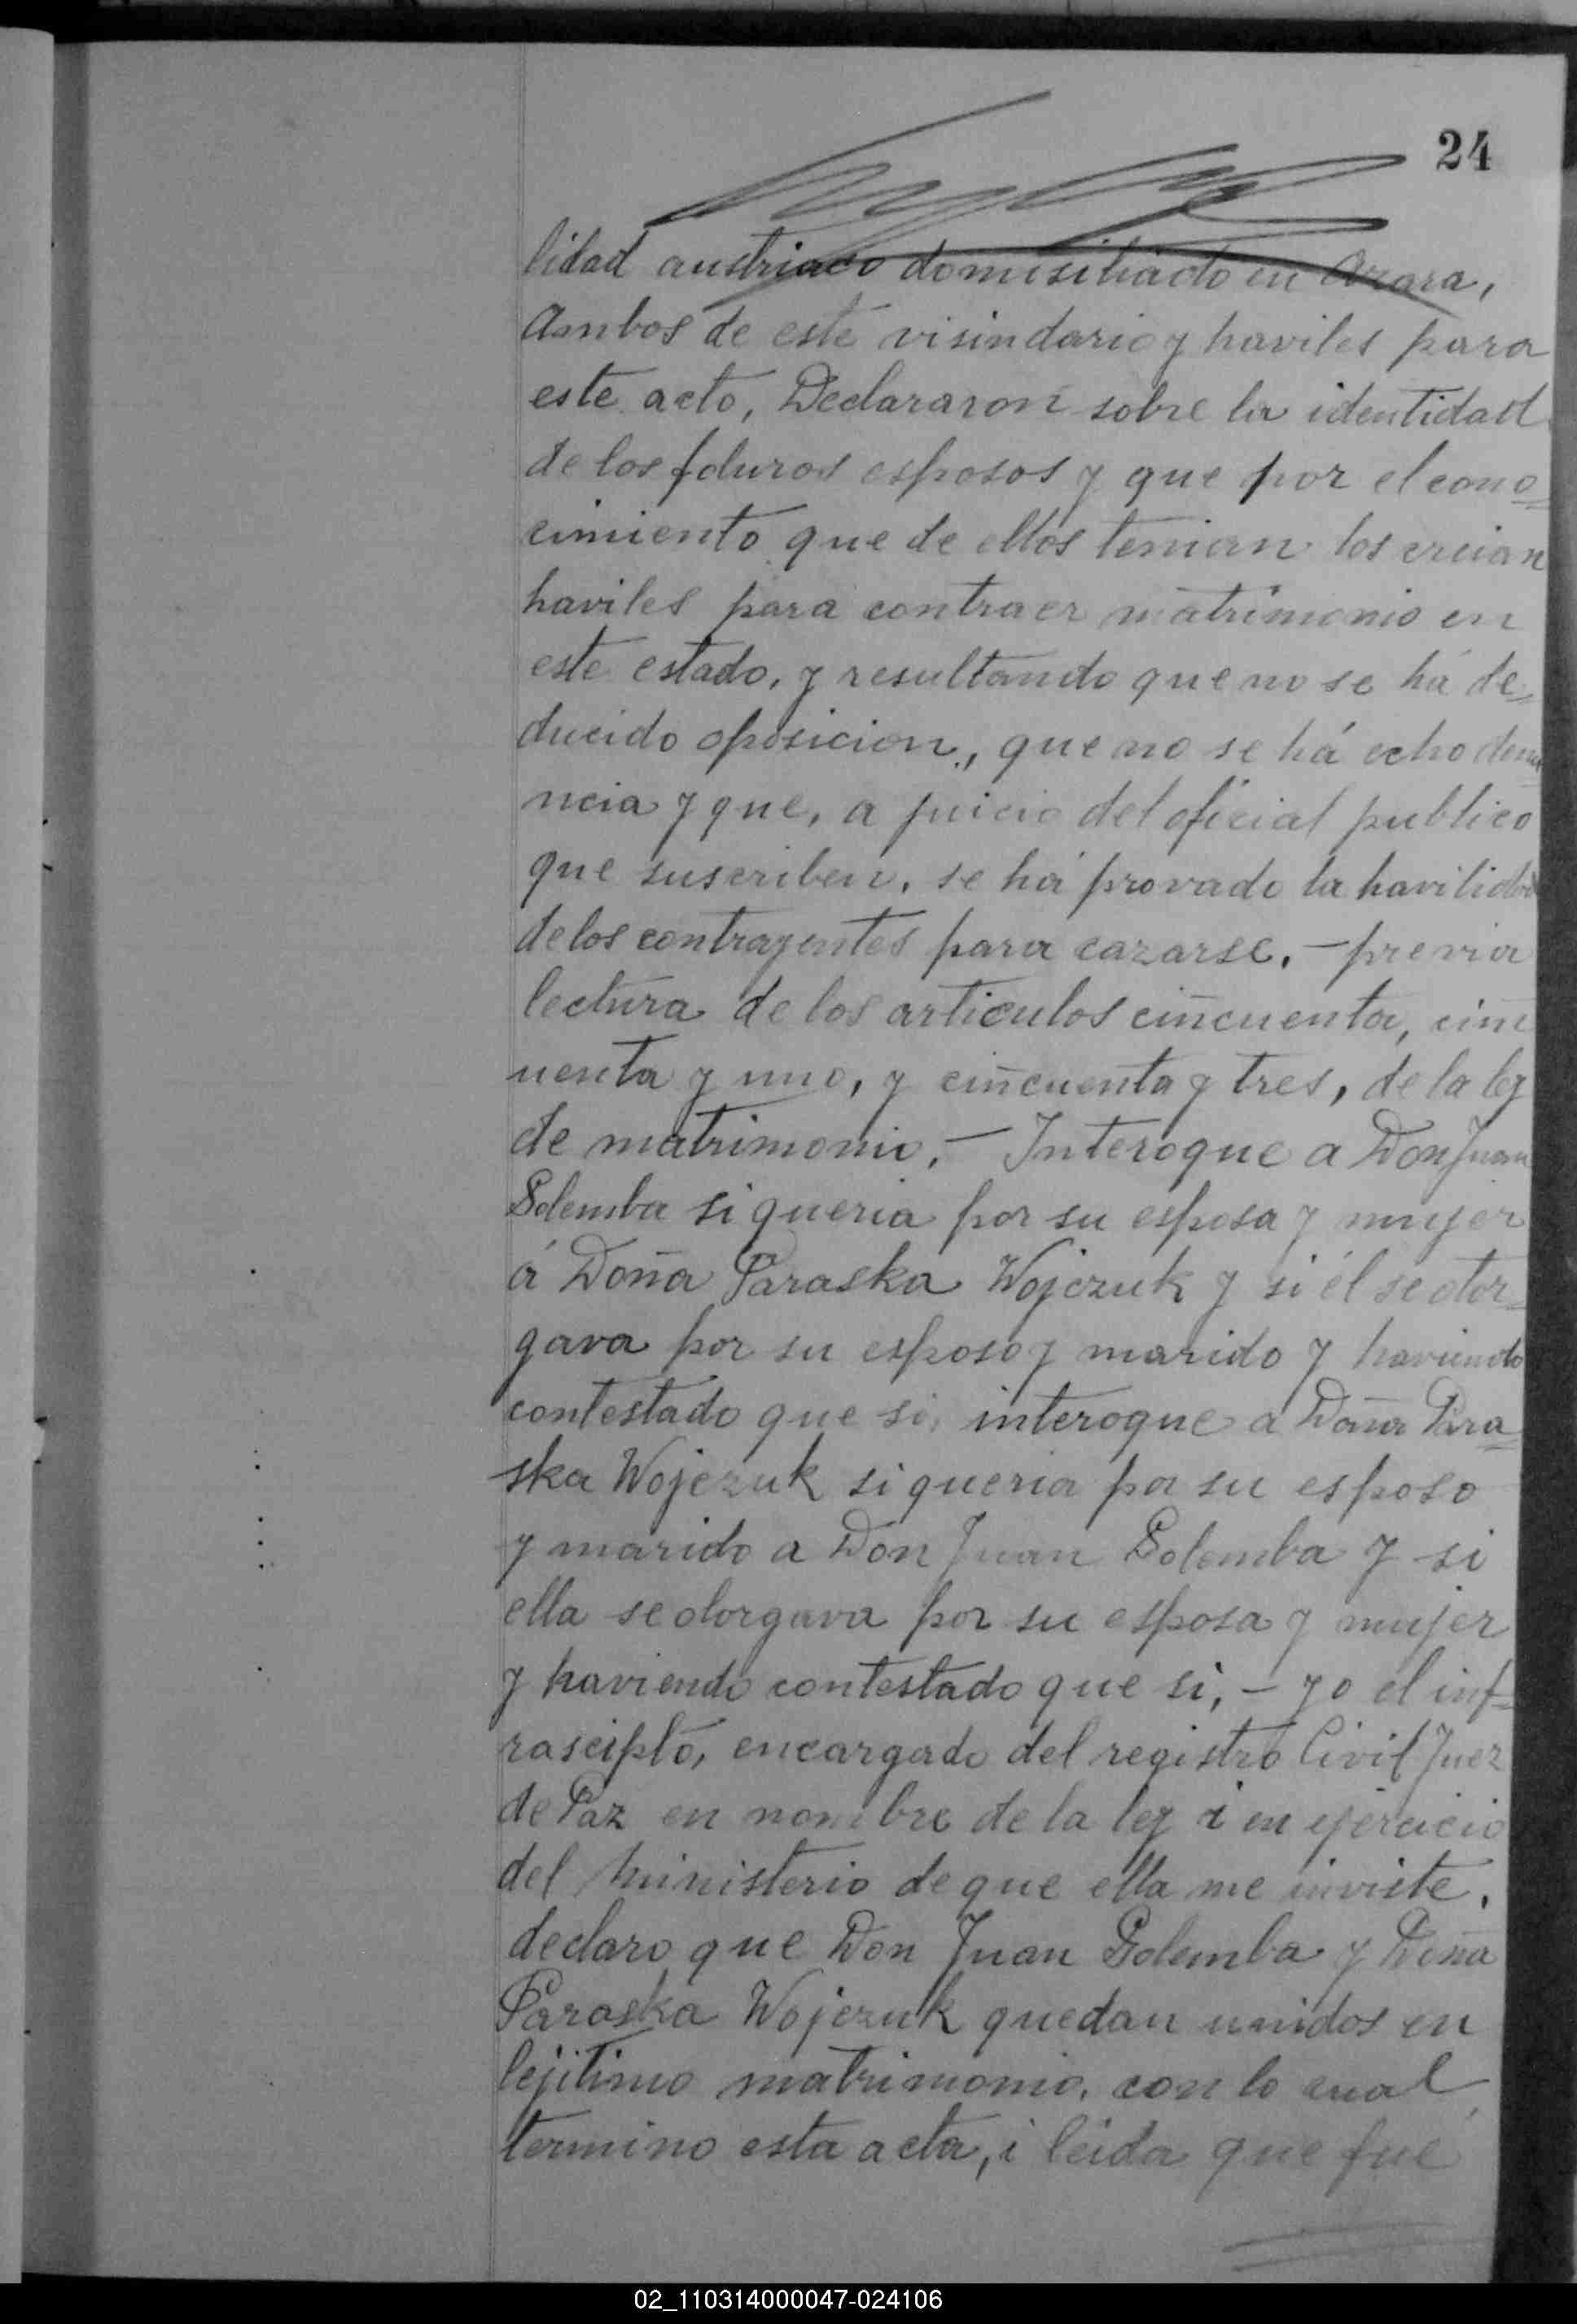 24
lidad austriaco domisiliado en Azara,
Ambos de este visindario y haviles para
este acto, Declararon sobre la identidad
de los foturos esposos y que por el cono=
cimiento que de ellos tenian los creian
haviles para contraer matrimonio en
este estado, y resultando que no se há de=
ducido oposicion, que no se há echo denu
ncia y que, a juicio del oficial publico
que suscriben, se há provado la havilidad
de los contrayentes para cazarse, - previa
lectura de los articulos ciñcuenta, ciñc
uenta y uno, y ciñcuenta y tres, de la ley
de matrimonio, - Interogue a Don Juan
Golemba si queria por su esposa y mujer
á Doña Paraska Wojczuk y si él se otor=
gava por su esposo y marido y haviendo
contestado que si, interogue a Doña Para=
ska Wojczuk si queria por su esposo
y marido a Don Juan Golemba y si
ella se otorgava por su esposa y mujer
y haviendo contestado que si, - yo el inf=
rascipto, encargado del registro Civil Juez
de Paz en nombre de la ley i en ejercicio
del ministerio de que ella me inviste,
declaro que Don Juan Golemba y Doña
Paraska Wojczuk quedan unidos en
lejitimo matrimonio, con lo cual
termino esta acta, i leida que fué
02_110314000047-024106